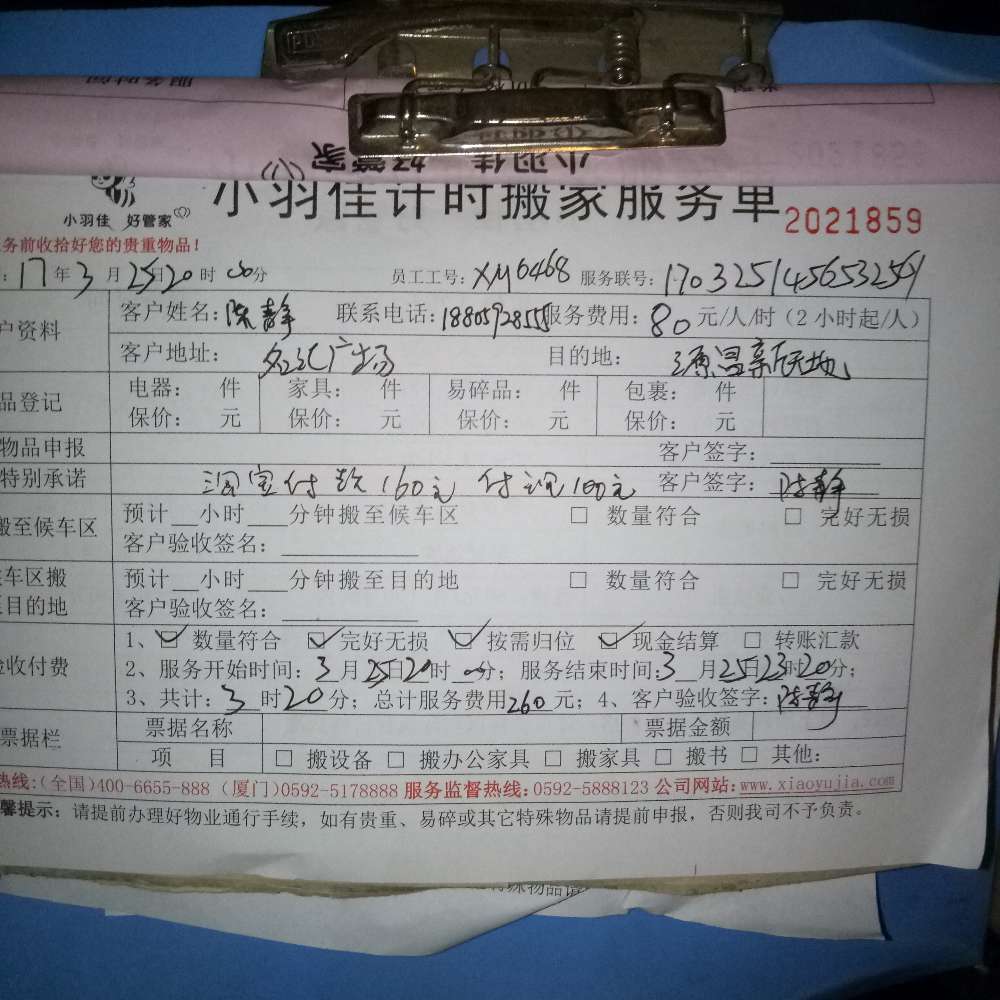 服务时间
小羽佳 好管家
小羽佳 好管家
小羽佳计时搬家服务单 2021859
务前收拾好您的贵重物品！
: 17年3月25日20时00分 员工工号: XM6468 服务联号:
户资料 客户姓名: 陈静 联系电话: 服务费用: 80元/人/时（2小时起/人）
客户地址: 名汇广场 目的地: 源昌新天地
品登记 电器: 件 家具: 件 易碎品: 件 包裹: 件
保价: 元 保价: 元 保价: 元 保价: 元
物品申报 客户签字:
特别承诺 淘宝付款160元 付现100元 客户签字: 陈静
搬至候车区 预计__小时___分钟搬至候车区 □ 数量符合 □ 完好无损
客户验收签名:
车区搬 预计__小时___分钟搬至目的地 □ 数量符合 □ 完好无损
目的地 客户验收签名:
验收付费 1、☑ 数量符合 ☑ 完好无损 ☑ 按需归位 ☑ 现金结算 □ 转账汇款
2、服务开始时间: 3月25日20时00分; 服务结束时间: 3月25日23时20分;
3、共计: 3时20分; 总计服务费用260元; 4、客户验收签字: 陈静
票据栏 票据名称 票据金额
项 目 □ 搬设备 □ 搬办公家具 □ 搬家具 □ 搬书 □ 其他:
热线:(全国)400-6655-888 (厦门)0592-5178888 服务监督热线:0592-5888123 公司网站:www.xiaoyujia.com
馨提示: 请提前办理好物业通行手续，如有贵重、易碎或其它特殊物品请提前申报，否则我司不予负责。